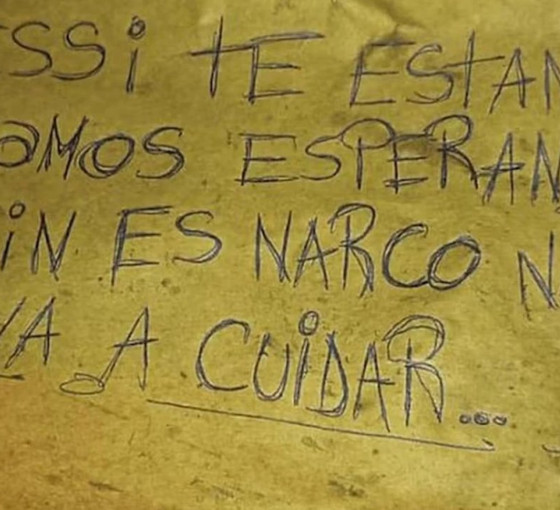 SSi tE EStAN
AMOS ESPERAN
iN ES NARCO N
VA A CUiDAR...